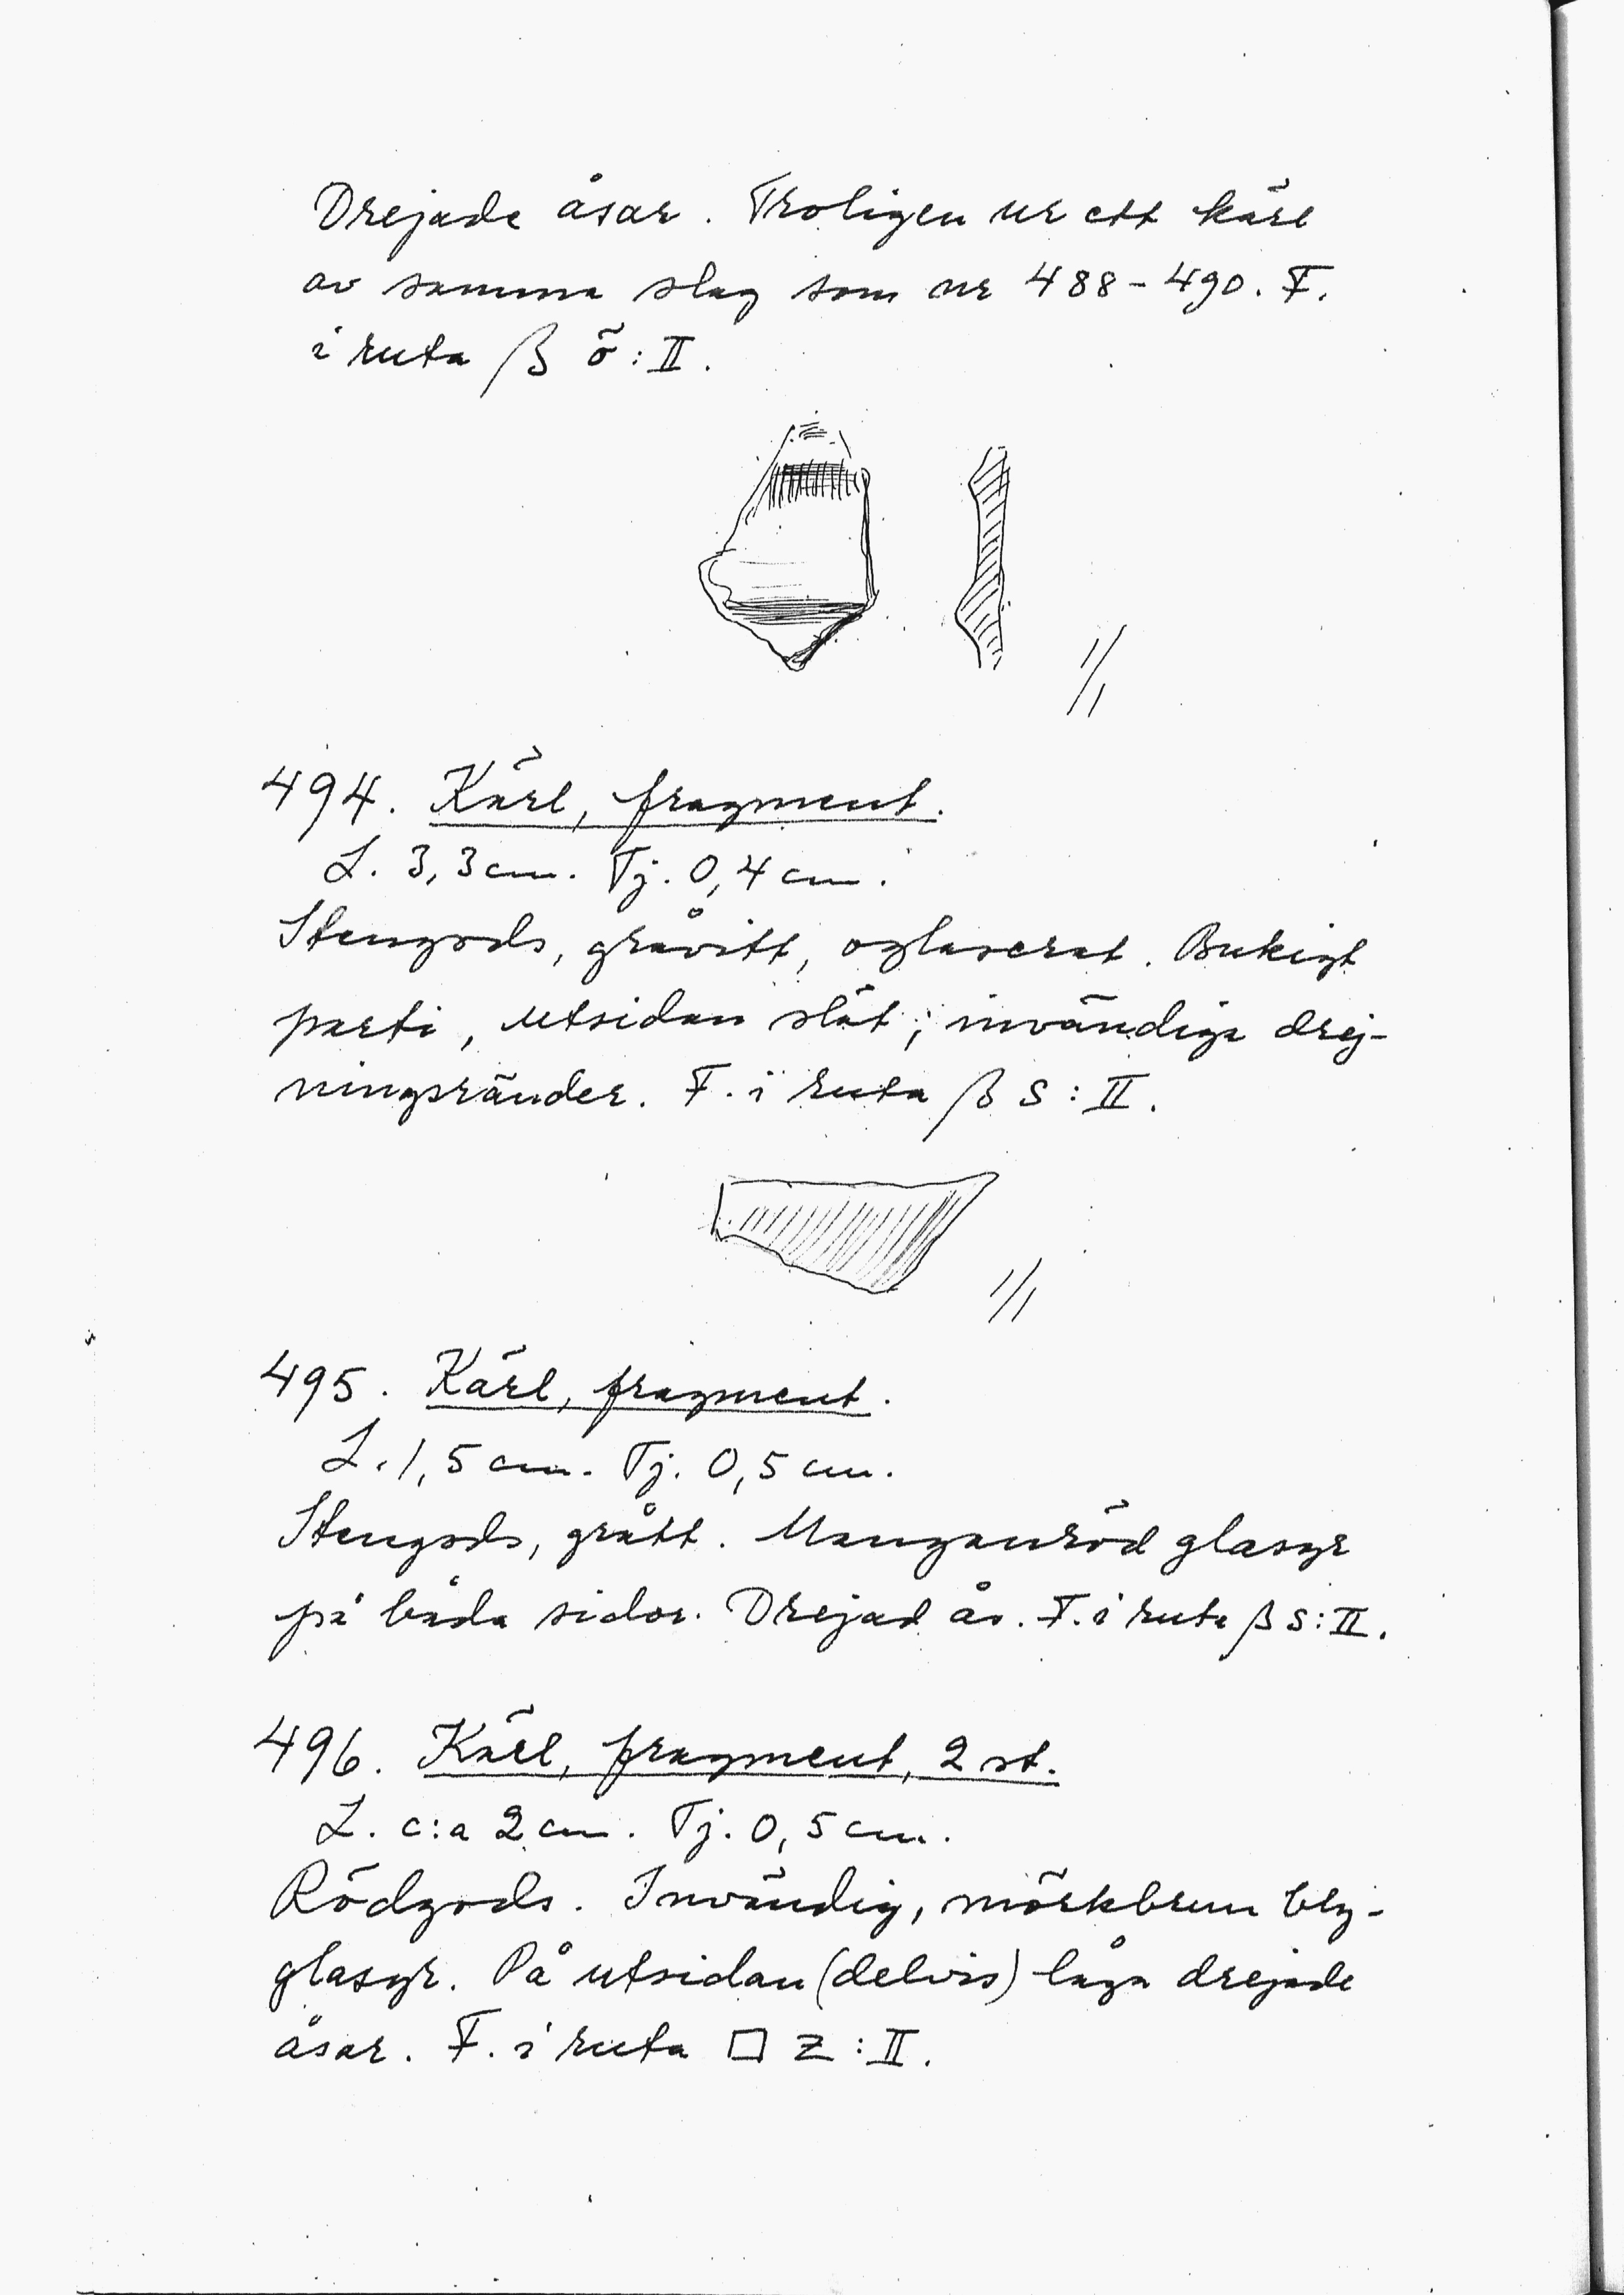 Drejade åsar. Troligen ur ett kärl
av samma slag som nr 488-490. F.
i ruta β ö:II.
1/1
494. Kärl, fragment.
L. 3,3 cm. Tj. 0,4 cm.
Stengods, gråvitt, oglaserat. Bukigt
parti, utsidan slät; invändiga drej-
ningsränder. F. i ruta β S:II.
1/1
495. Kärl, fragment.
L. 1,5 cm. Tj. 0,5 cm.
Stengods, grått. Manganröd glasyr
på båda sidor. Drejad ås. F. i ruta β S:II.
496. Kärl, fragment, 2 st.
L. c:a 2 cm. Tj. 0,5 cm.
Rödgods. Invändig, mörkbrun bly-
glasyr. På utsidan (delvis) låga drejade
åsar. F. i ruta □ Z:II.